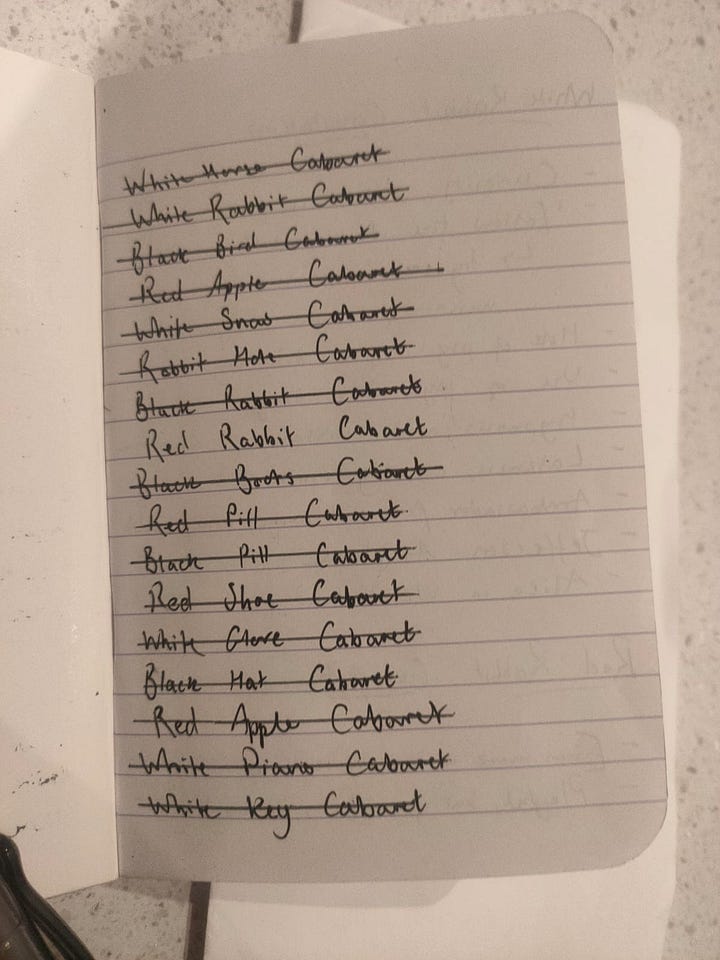 White Horse Cabaret
White Rabbit Cabaret
Black Bird Cabaret
Red Apple Cabaret
White Snow Cabaret
Rabbit Hole Cabaret
Black Rabbit Cabaret
Red Rabbit Cabaret
Black Boots Cabaret
Red Pill Cabaret
Black Pill Cabaret
Red Shoe Cabaret
White Glove Cabaret
Black Hat Cabaret
Red Apple Cabaret
White Piano Cabaret
White Key Cabaret